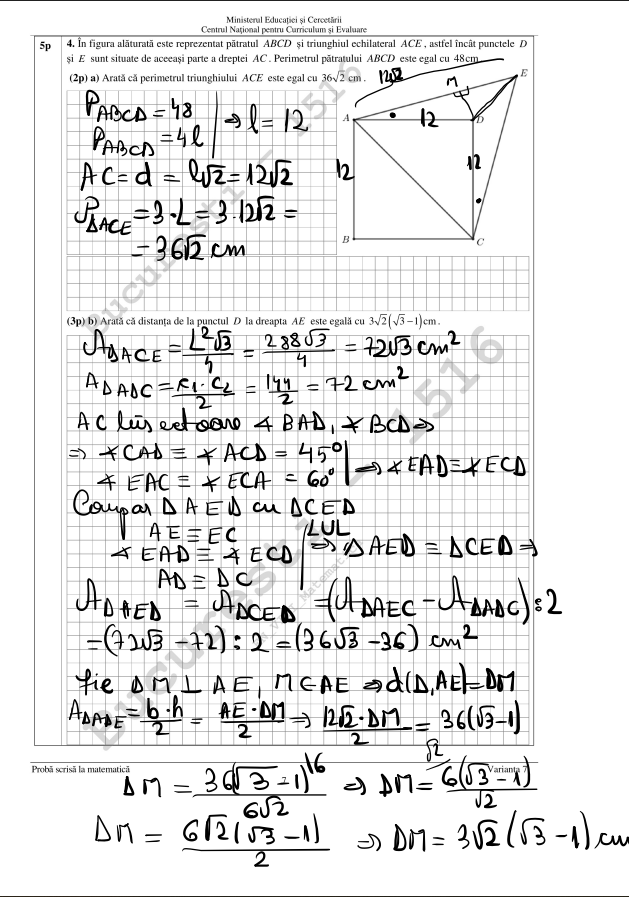 Ministerul Educației și Cercetării
Centrul Național pentru Curriculum și Evaluare
5p
4. În figura alăturată este reprezentat pătratul ABCD și triunghiul echilateral ACE, astfel încât punctele D
și E sunt situate de aceeași parte a dreptei AC. Perimetrul pătratului ABCD este egal cu 48cm
(2p) a) Arată că perimetrul triunghiului ACE este egal cu 36√2 cm.
12√2
M
E
A
12
D
12
12
B
C
P ABCD = 48
P ABCD = 4l
⇒ l = 12
AC = d = l√2 = 12√2
P ΔACE = 3·L = 3·12√2 =
= 36√2 cm
(3p) b) Arată că distanța de la punctul D la dreapta AE este egală cu 3√2(√3−1)cm.
A ΔACE = L²√3/4 = 288√3/4 = 72√3 cm²
A ΔADC = c1·c2/2 = 144/2 = 72 cm²
AC bisectoare ∢ BAD, ∢ BCD ⇒
⇒ ∢CAD ≡ ∢ACD = 45°
∢ EAC ≡ ∢ECA = 60°
⇒ ∢EAD ≡ ∢ECD
Compar Δ AED cu ΔCED
AE ≡ EC
∢ EAD ≡ ∢ECD
AD ≡ DC
LUL ⇒ ΔAED ≡ ΔCED ⇒
A ΔAED = A ΔCED = (A ΔAEC − A ΔADC) : 2
= (72√3 − 72) : 2 = (36√3 − 36) cm²
Fie DM ⊥ AE, M ∈ AE ⇒ d(D,AE) = DM
A ΔADE = b·h/2 = AE·DM/2 ⇒ 12√2·DM/2 = 36(√3−1)
Probă scrisă la matematică
Varianta 7
DM = 36(√3−1)/6√2 |6 ⇒ DM = √2/ 6(√3−1)/√2
DM = 6√2(√3−1)/2 ⇒ DM = 3√2(√3−1) cm
București
1516